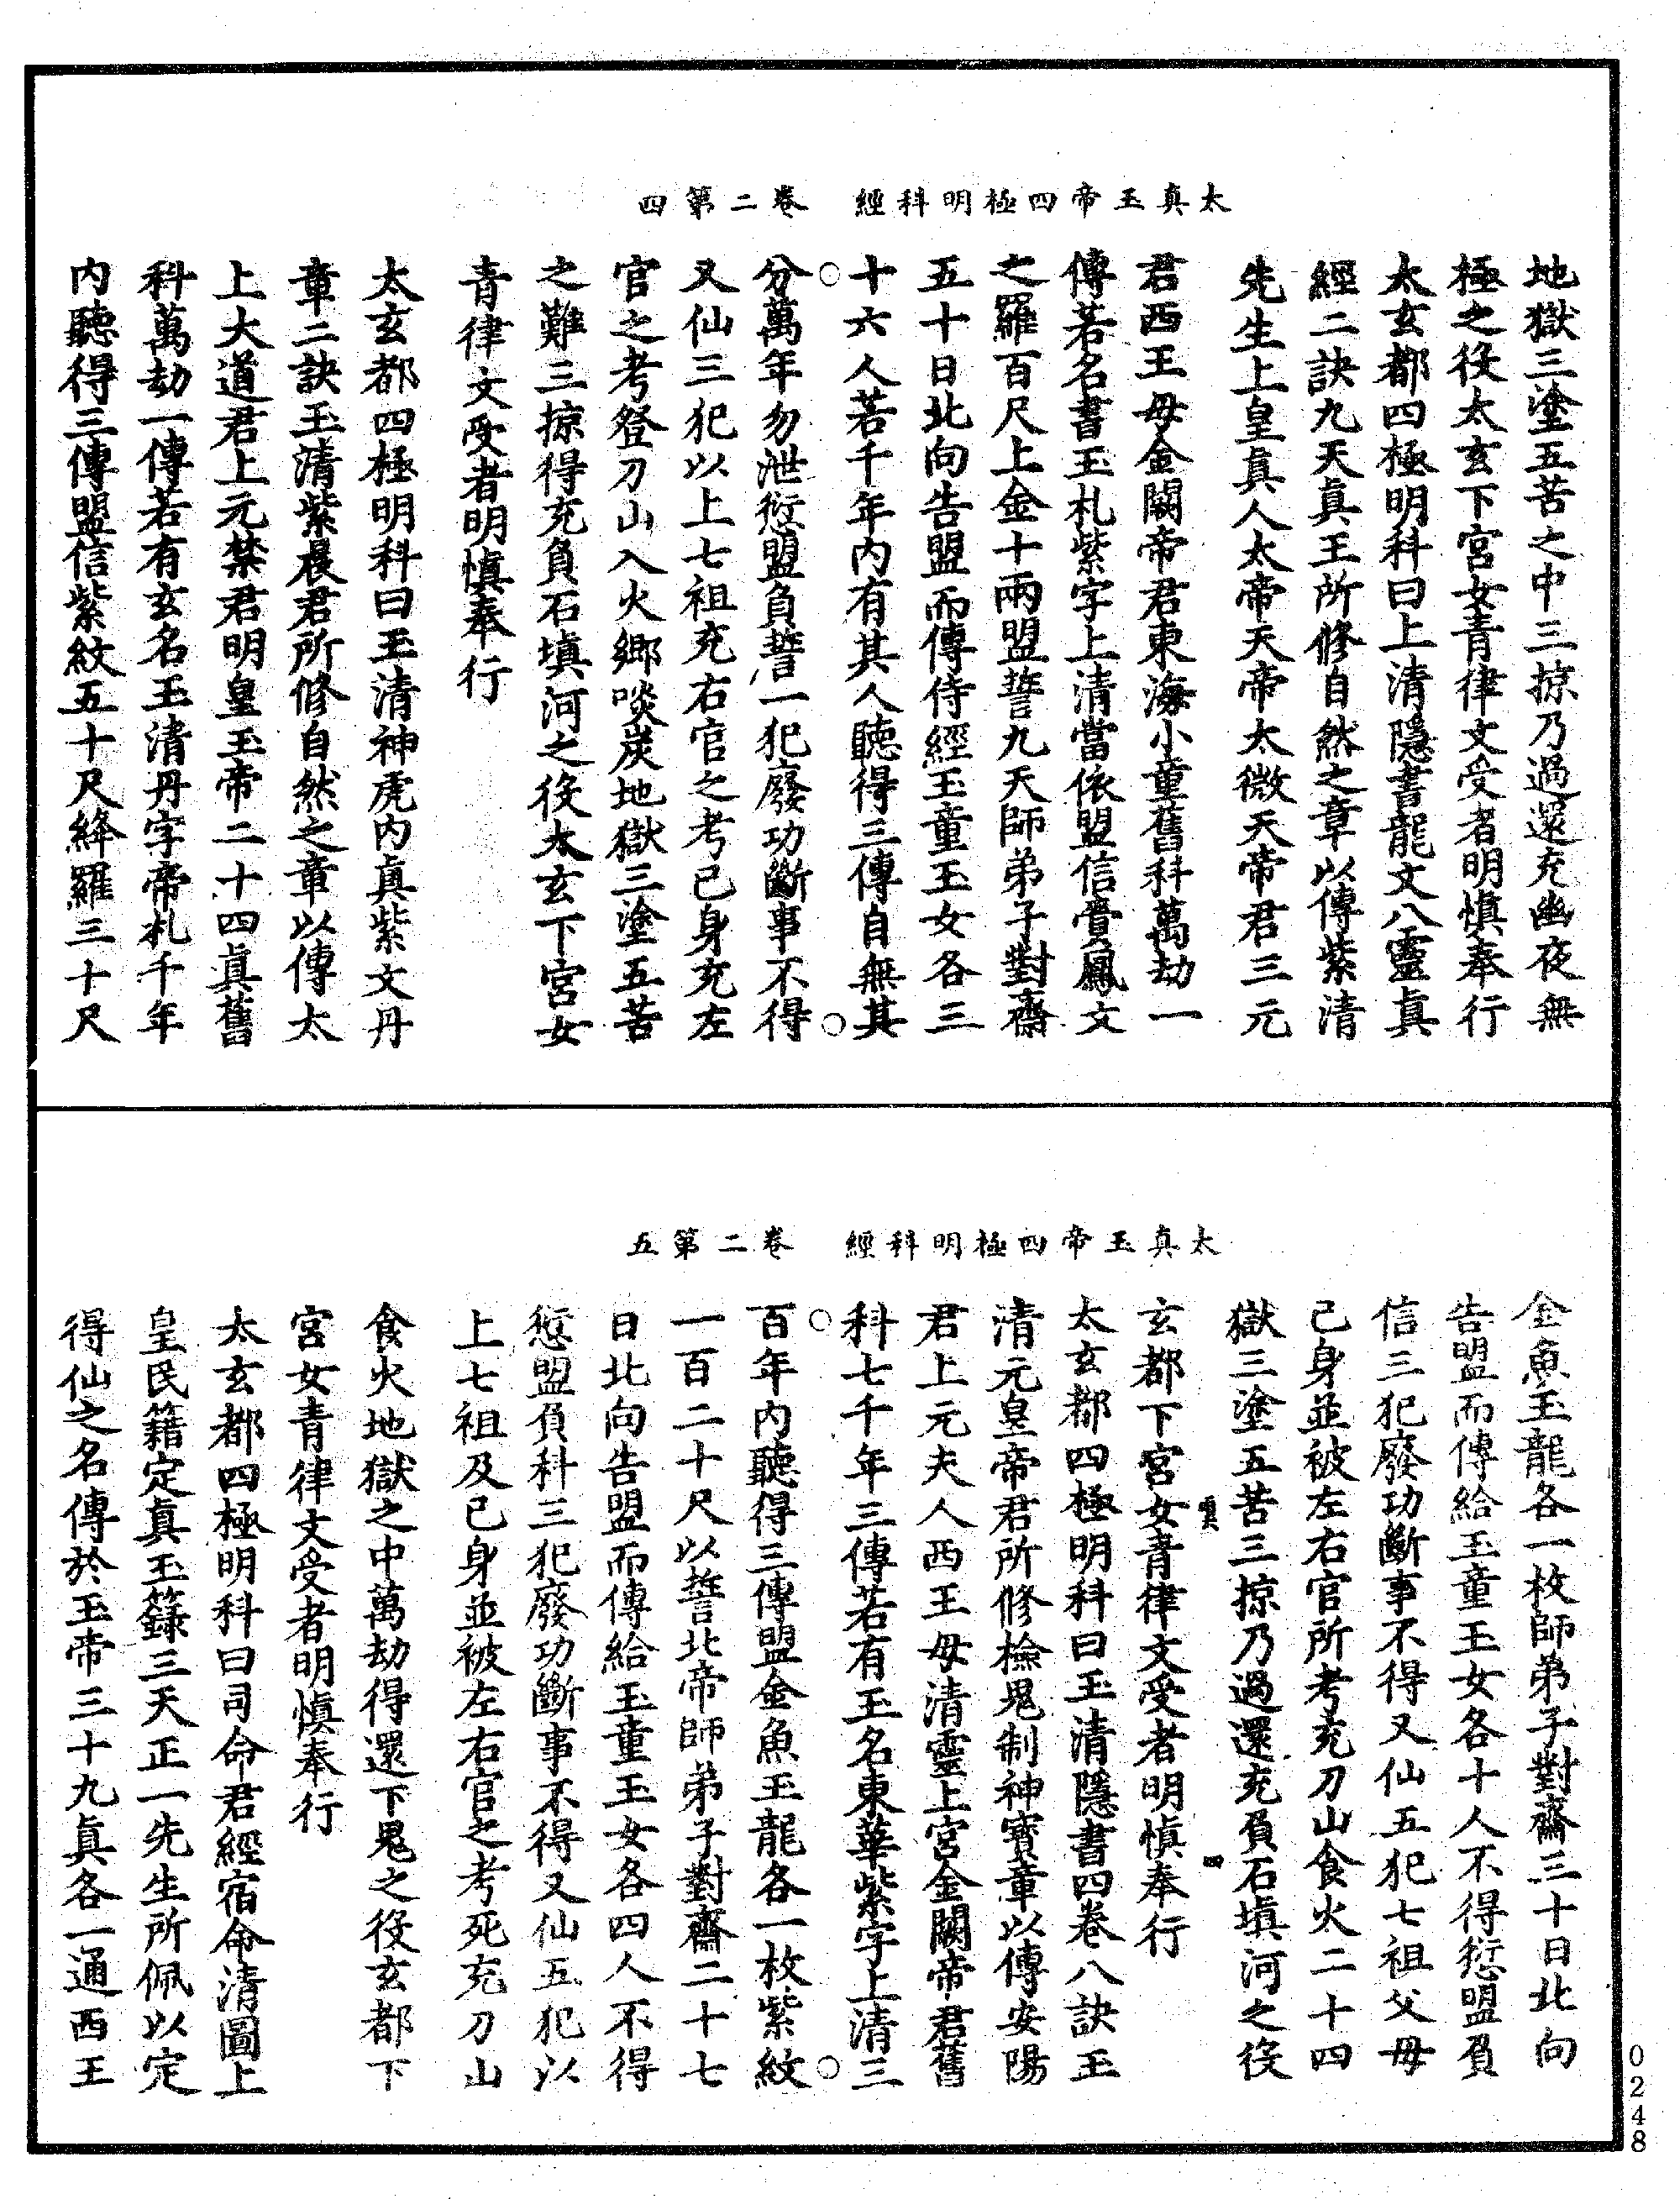 太真玉帝四極明科經　卷二第四
地獄三塗五苦之中三掠乃過還充幽夜無
極之役太玄下宮女青律文受者明慎奉行
太玄都四極明科曰上清隱書龍文八靈真
經二訣九天真王所修自然之章以傳紫清
先生上皇真人太帝天帝太微天帝君三元
君西王母金闕帝君東海小童舊科萬劫一
傳若名書玉札紫字上清當依盟信賷鳳文
之羅百尺上金十兩盟誓九天師弟子對齋
五十日北向告盟而傳侍經玉童玉女各三
十六人若千年內有其人聽得三傳自無其
分萬年勿泄愆盟負誓一犯廢功斷事不得
又仙三犯以上七祖充右官之考己身充左
官之考登刀山入火鄉啖炭地獄三塗五苦
之難三掠得充負石填河之役太玄下宮女
青律文受者明慎奉行
太玄都四極明科曰玉清神虎內真紫文丹
章二訣玉清紫晨君所修自然之章以傳太
上大道君上元禁君明皇玉帝二十四真舊
科萬劫一傳若有玄名玉清丹字帝札千年
內聽得三傳盟信紫紋五十尺絳羅三十尺
太真玉帝四極明科經　卷二第五
金魚玉龍各一枚師弟子對齋三十日北向
告盟而傳給玉童玉女各十人不得愆盟負
信三犯廢功斷事不得又仙五犯七祖父母
己身並被左右官所考充刀山食火二十四
獄三塗五苦三掠乃過還充負石填河之役
玄都下宮女青律文受者明慎奉行
太玄都四極明科曰玉清隱書四卷八訣玉
清元皇帝君所修檢鬼制神寶章以傳安陽
君上元夫人西王母清靈上宮金闕帝君舊
科七千年三傳若有玉名東華紫字上清三
百年內聽得三傳盟金魚玉龍各一枚紫紋
一百二十尺以誓北帝師弟子對齋二十七
日北向告盟而傳給玉童玉女各四人不得
愆盟負科三犯廢功斷事不得又仙五犯以
上七祖及己身並被左右官之考死充刀山
食火地獄之中萬劫得還下鬼之役玄都下
宮女青律文受者明慎奉行
太玄都四極明科曰司命君經宿命清圖上
皇民籍定真玉籙三天正一先生所佩以定
得仙之名傳於玉帝三十九真各一通西王
0248